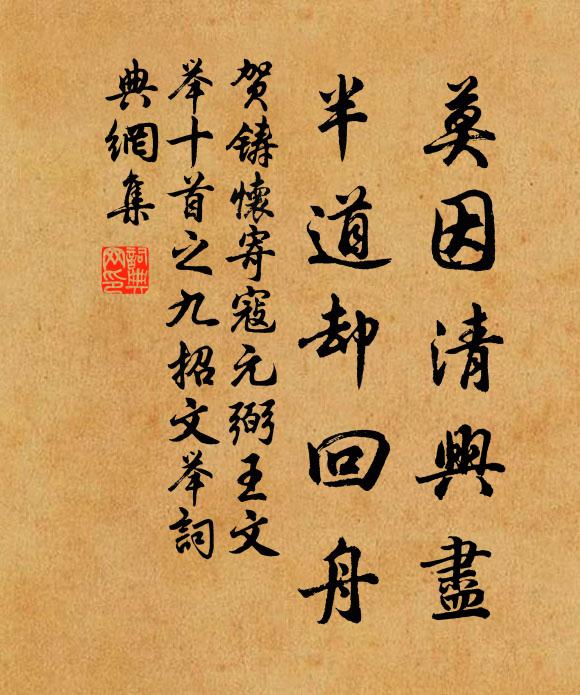 莫因清興盡
半道却回舟
贺鑄懷寄寇元弼王文
举十首之九招文举詞
典網集
詞典網印